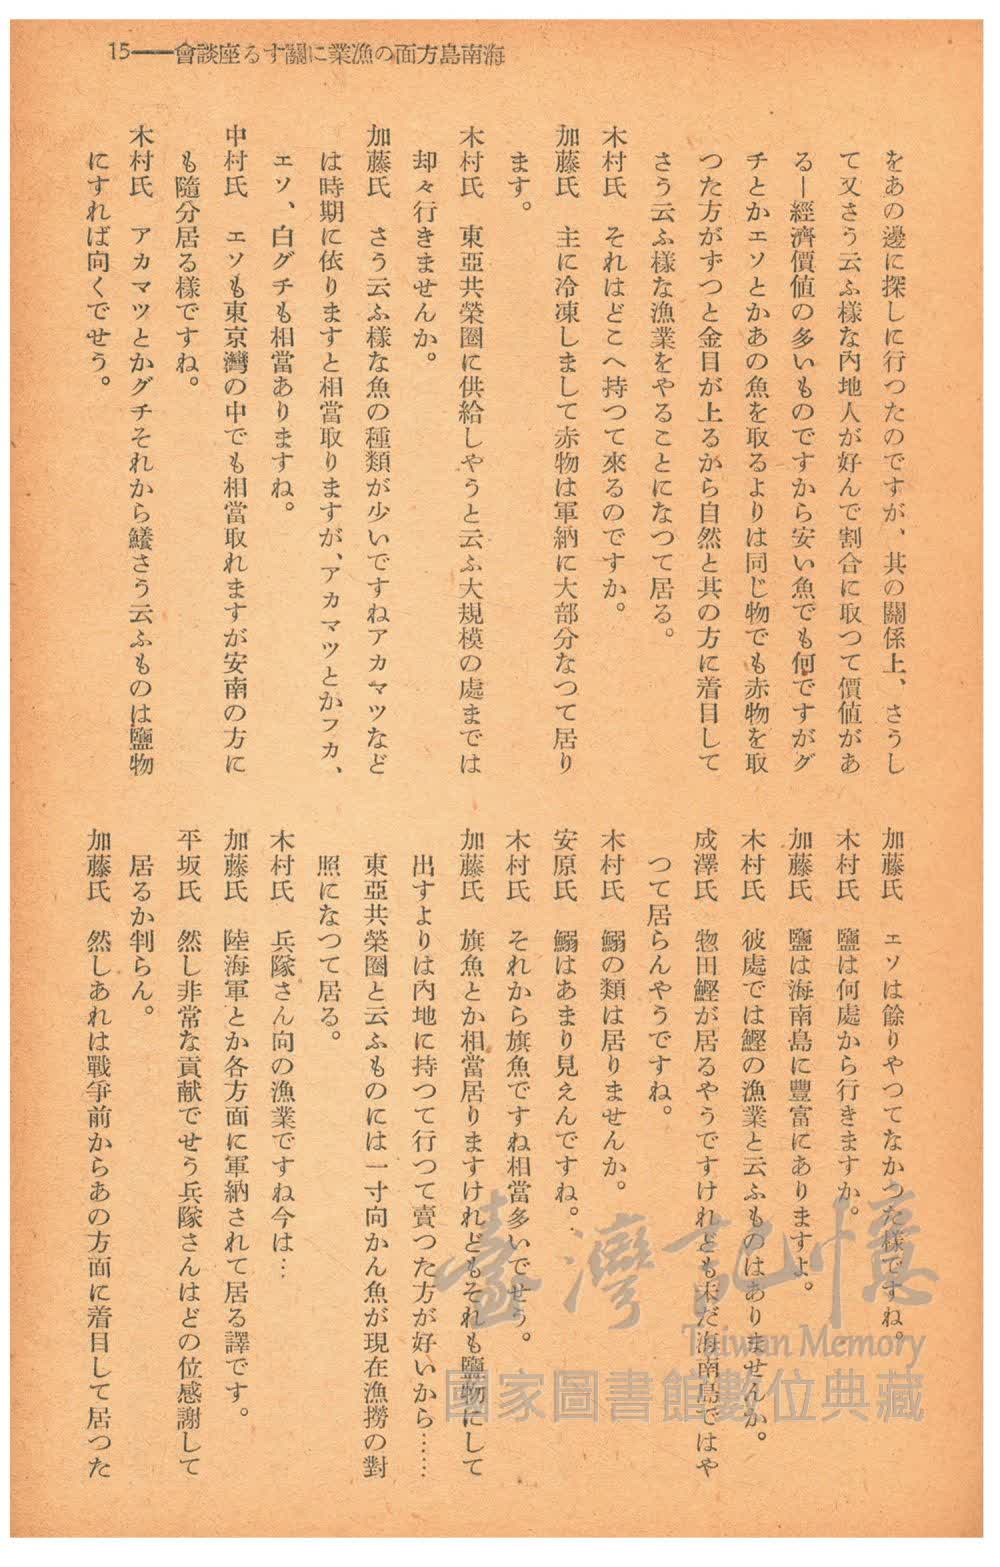 海南島方面の漁業に關する座談會――15
をあの邊に探しに行つたのですが、其の關係上、さうし
て又さう云ふ樣な內地人が好んで割合に取つて價値があ
る―經濟價値の多いものですから安い魚でも何ですがグ
チとかエソとかあの魚を取るよりは同じ物でも赤物を取
つた方がずつと金目が上るから自然と其の方に着目して
さう云ふ樣な漁業をやることになつて居る。
木村氏　それはどこへ持つて來るのですか。
加藤氏　主に冷凍しまして赤物は軍納に大部分なつて居り
ます。
木村氏　東亞共榮圈に供給しやうと云ふ大規模の處までは
却々行きませんか。
加藤氏　さう云ふ樣な魚の種類が少いですねアカマツなど
は時期に依りますと相當取りますが、アカマツとかフカ、
エソ、白グチも相當ありますね。
中村氏　エソも東京灣の中でも相當取れますが安南の方に
も隨分居る樣ですね。
木村氏　アカマツとかグチそれから鱶さう云ふものは鹽物
にすれば向くでせう。
加藤氏　エソは餘りやつてなかつた樣ですね。
木村氏　鹽は何處から行きますか。
加藤氏　鹽は海南島に豐富にありますよ。
木村氏　彼處では鰹の漁業と云ふものはありませんか。
成澤氏　惣田鰹が居るやうですけれども未だ海南島ではや
つて居らんやうですね。
木村氏　鰯の類は居りませんか。
安原氏　鰯はあまり見えんですね。
木村氏　それから旗魚ですね相當多いでせう。
加藤氏　旗魚とか相當居りますけれどもそれも鹽物にして
出すよりは內地に持つて行つて賣つた方が好いから……
東亞共榮圈と云ふものには一寸向かん魚が現在漁撈の對
照になつて居る。
木村氏　兵隊さん向の漁業ですね今は…
加藤氏　陸海軍とか各方面に軍納されて居る譯です。
平坂氏　然し非常な貢献でせう兵隊さんはどの位感謝して
居るか判らん。
加藤氏　然しあれは戰爭前からあの方面に着目して居つた
臺灣記憶
Taiwan Memory
國家圖書館數位典藏